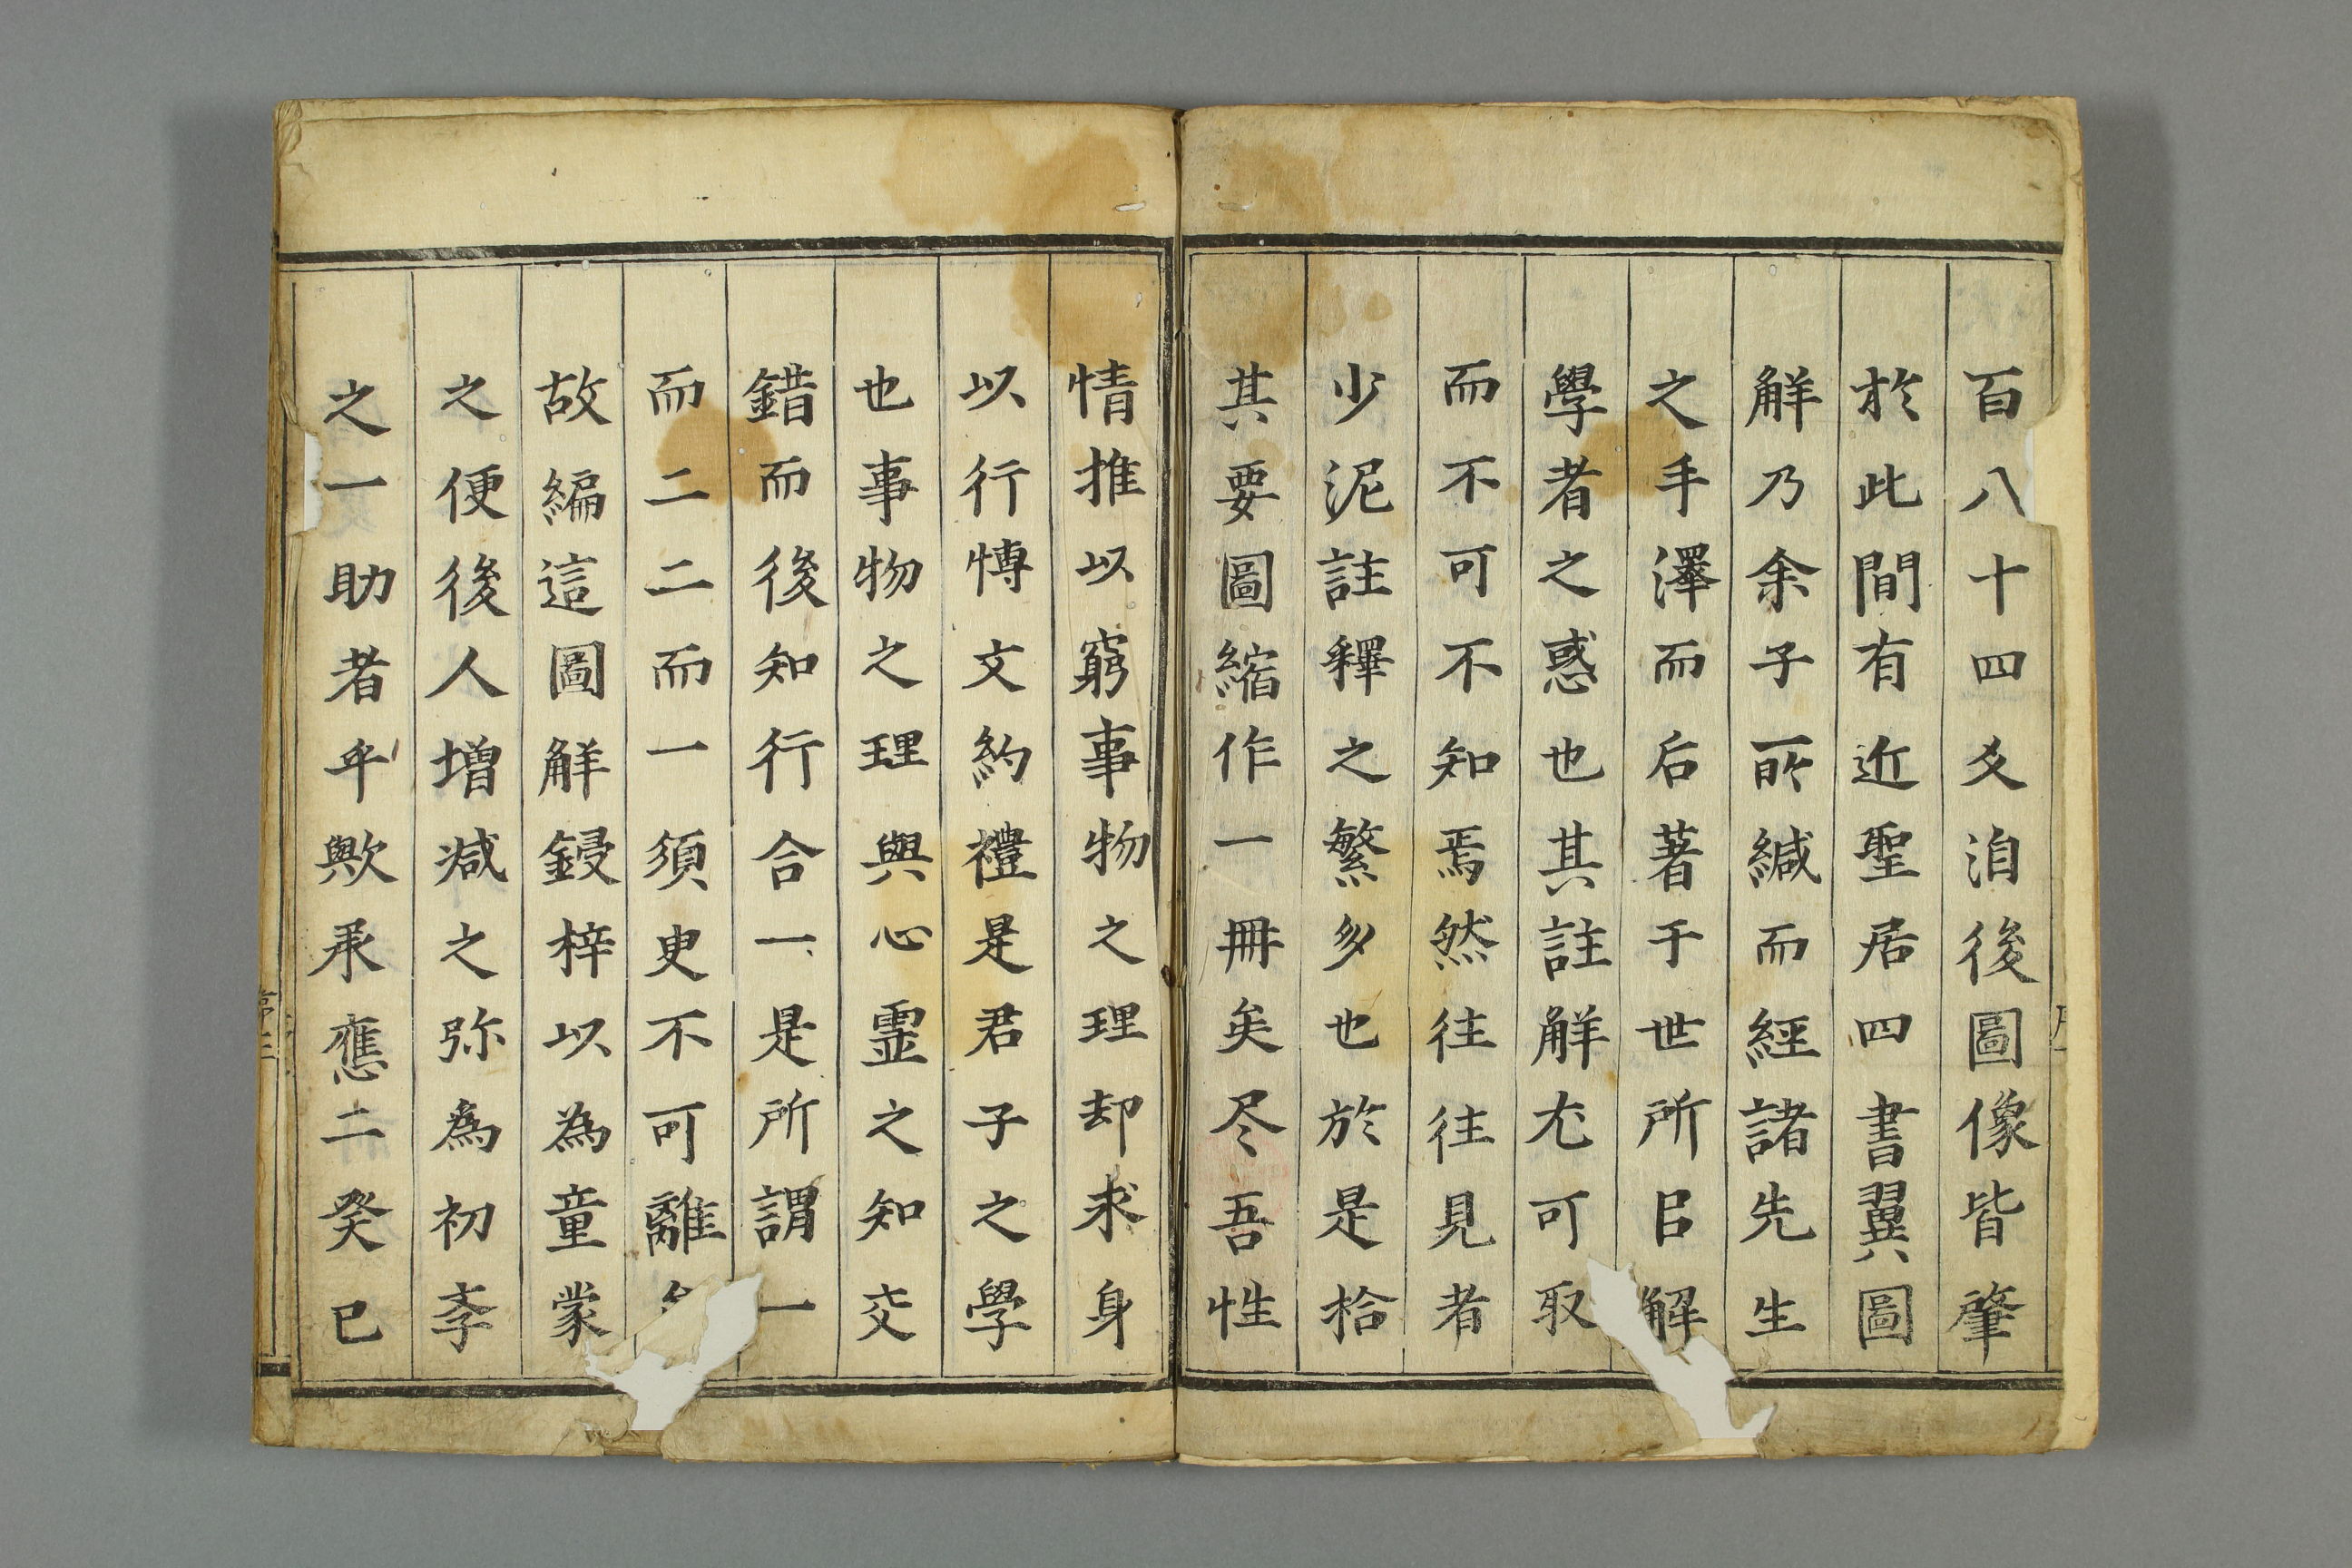 百八十四爻洎後圖像皆肇
於此間有近聖居四書翼圖
解乃余子所緘而經諸先生
之手澤而后著于世所㠯解
學者之惑也其註解尤可取
而不可不知焉然往往見者
少泥註釋之繁多也於是拾
其要圖縮作一冊矣尽吾性
情推以窮事物之理却求身
以行博文約禮是君子之學
也事物之理與心霊之知交
錯而後知行合一是所謂一
而二二而一須臾不可離
故編這圖解鋟梓以為童蒙
之便後人增减之弥為初斈
之一助者乎歟承應二癸巳